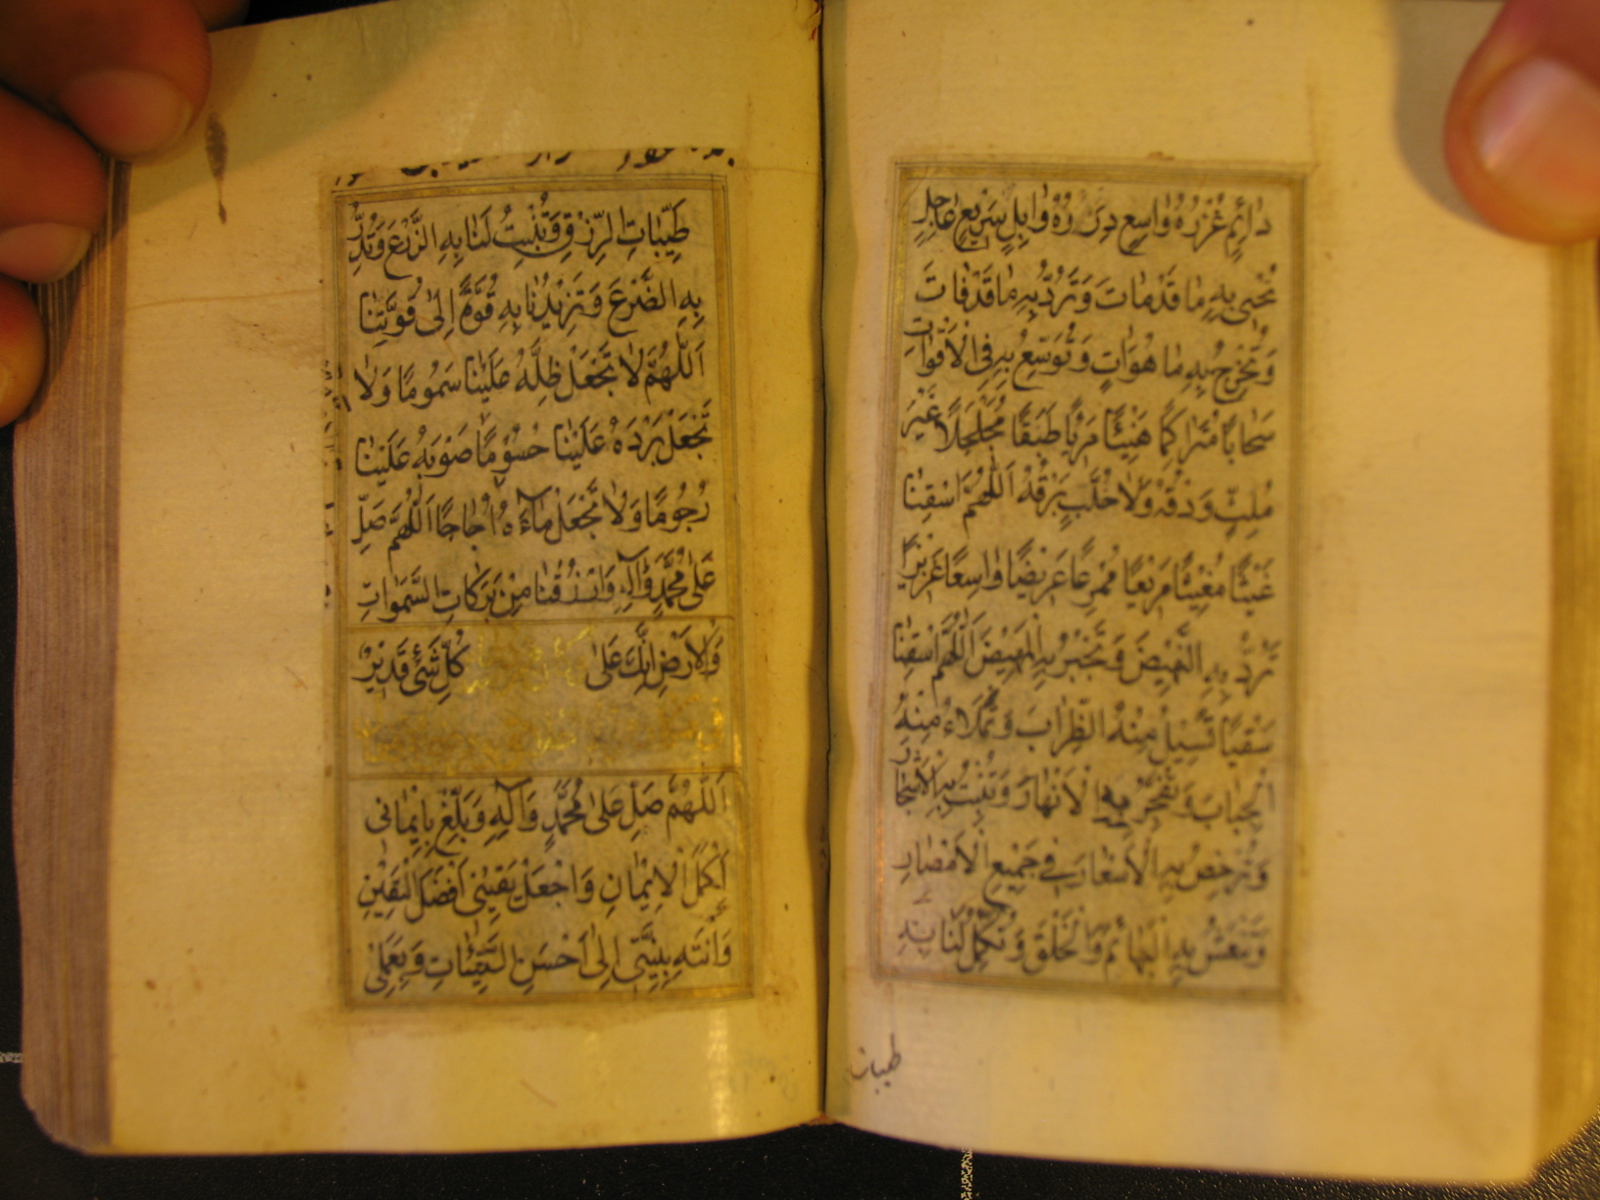 دٰائِمٍ غُزْرُهُ وٰاسِعٍ دِرَرُهُ وٰابِلٍ سَرِيعٍ عٰاجِلٍ
تُحْيى بِهِ مٰا قَدْ مٰاتَ وَتَرُدُّ بِهِ مٰا قَدْ فٰاتَ
وَتُخْرِجُ بِهِ مٰا هُوَ اٰتٍ وَتُوَسِّعُ بِهِ فِى الْاَقْوٰاتِ
سَحٰابًا مُتَرٰاكِمًا هَنِيئًا مَرِيًا طَبَقًا مُجَلْجَلًا غَيْرَ
مُلِثٍّ وَدْقُهُ وَلٰا خُلَّبٍ بَرْقُهُ اَللّٰهُمَّ اسْقِنٰا
غَيْثًا مُغِيثًا مَرِيعًا مُمْرِعًا عَرِيضًا وٰاسِعًا غَزِيرًا
تَرُدُّ بِهِ النَّهِيضَ وَتَجْبُرُ بِهِ الْمَهِيضَ اَللّٰهُمَّ اسْقِنٰا
سَقْيًا تُسِيلُ مِنْهُ الظِّرٰابَ وَتَمْلَاءُ مِنْهُ
الْجِبٰابَ وَتُفَجِّرُ بِهِ الْاَنْهٰارَ وَتُنْبِتُ بِهِ الْاَشْجٰارَ
وَتُرْخِصُ بِهِ الْاَسْعٰارَ فِى جَمِيعِ الْاَمْصٰارِ
وَتَنْعَشُ بِهِ الْبَهٰائِمَ وَالْخَلْقَ وَتُكْمِلُ لَنٰا بِهِ
طيبات
طَيِّبٰاتِ الرِّزْقِ وَتُنْبِتُ لَنٰا بِهِ الزَّرْعَ وَتُدِرُّ
بِهِ الضَّرْعَ وَتَزِيدُنٰا بِهِ قُوَّةً اِلىٰ قُوَّتِنٰا
اَللّٰهُمَّ لٰا تَجْعَلْ ظِلَّهُ عَلَيْنٰا سَمُومًا وَلٰا
تَجْعَلْ بَرْدَهُ عَلَيْنٰا حُسُومًا صَوْبَهُ عَلَيْنٰا
رُجُومًا وَلٰا تَجْعَلْ مٰآءَهُ اُجٰاجًا اَللّٰهُمَّ صَلِّ
عَلىٰ مُحَمَّدٍ وَآلِهِ وَارْزُقْنٰا مِنْ بَرَكٰاتِ السَّمٰوٰاتِ
وَالْاَرْضِ اِنَّكَ عَلىٰ كُلِّ شَىْءٍ قَدِيرٌ
اَللّٰهُمَّ صَلِّ عَلىٰ مُحَمَّدٍ وَآلِهِ وَبَلِّغْ بِاِيمٰانى
اَكْمَلَ الْاِيمٰانِ وَاجْعَلْ يَقِينِى اَفْضَلَ الْيَقِينِ
وَانْتَهِ بِنِيَّتِى اِلىٰ اَحْسَنِ النِّيّٰاتِ وَبِعَمَلِى